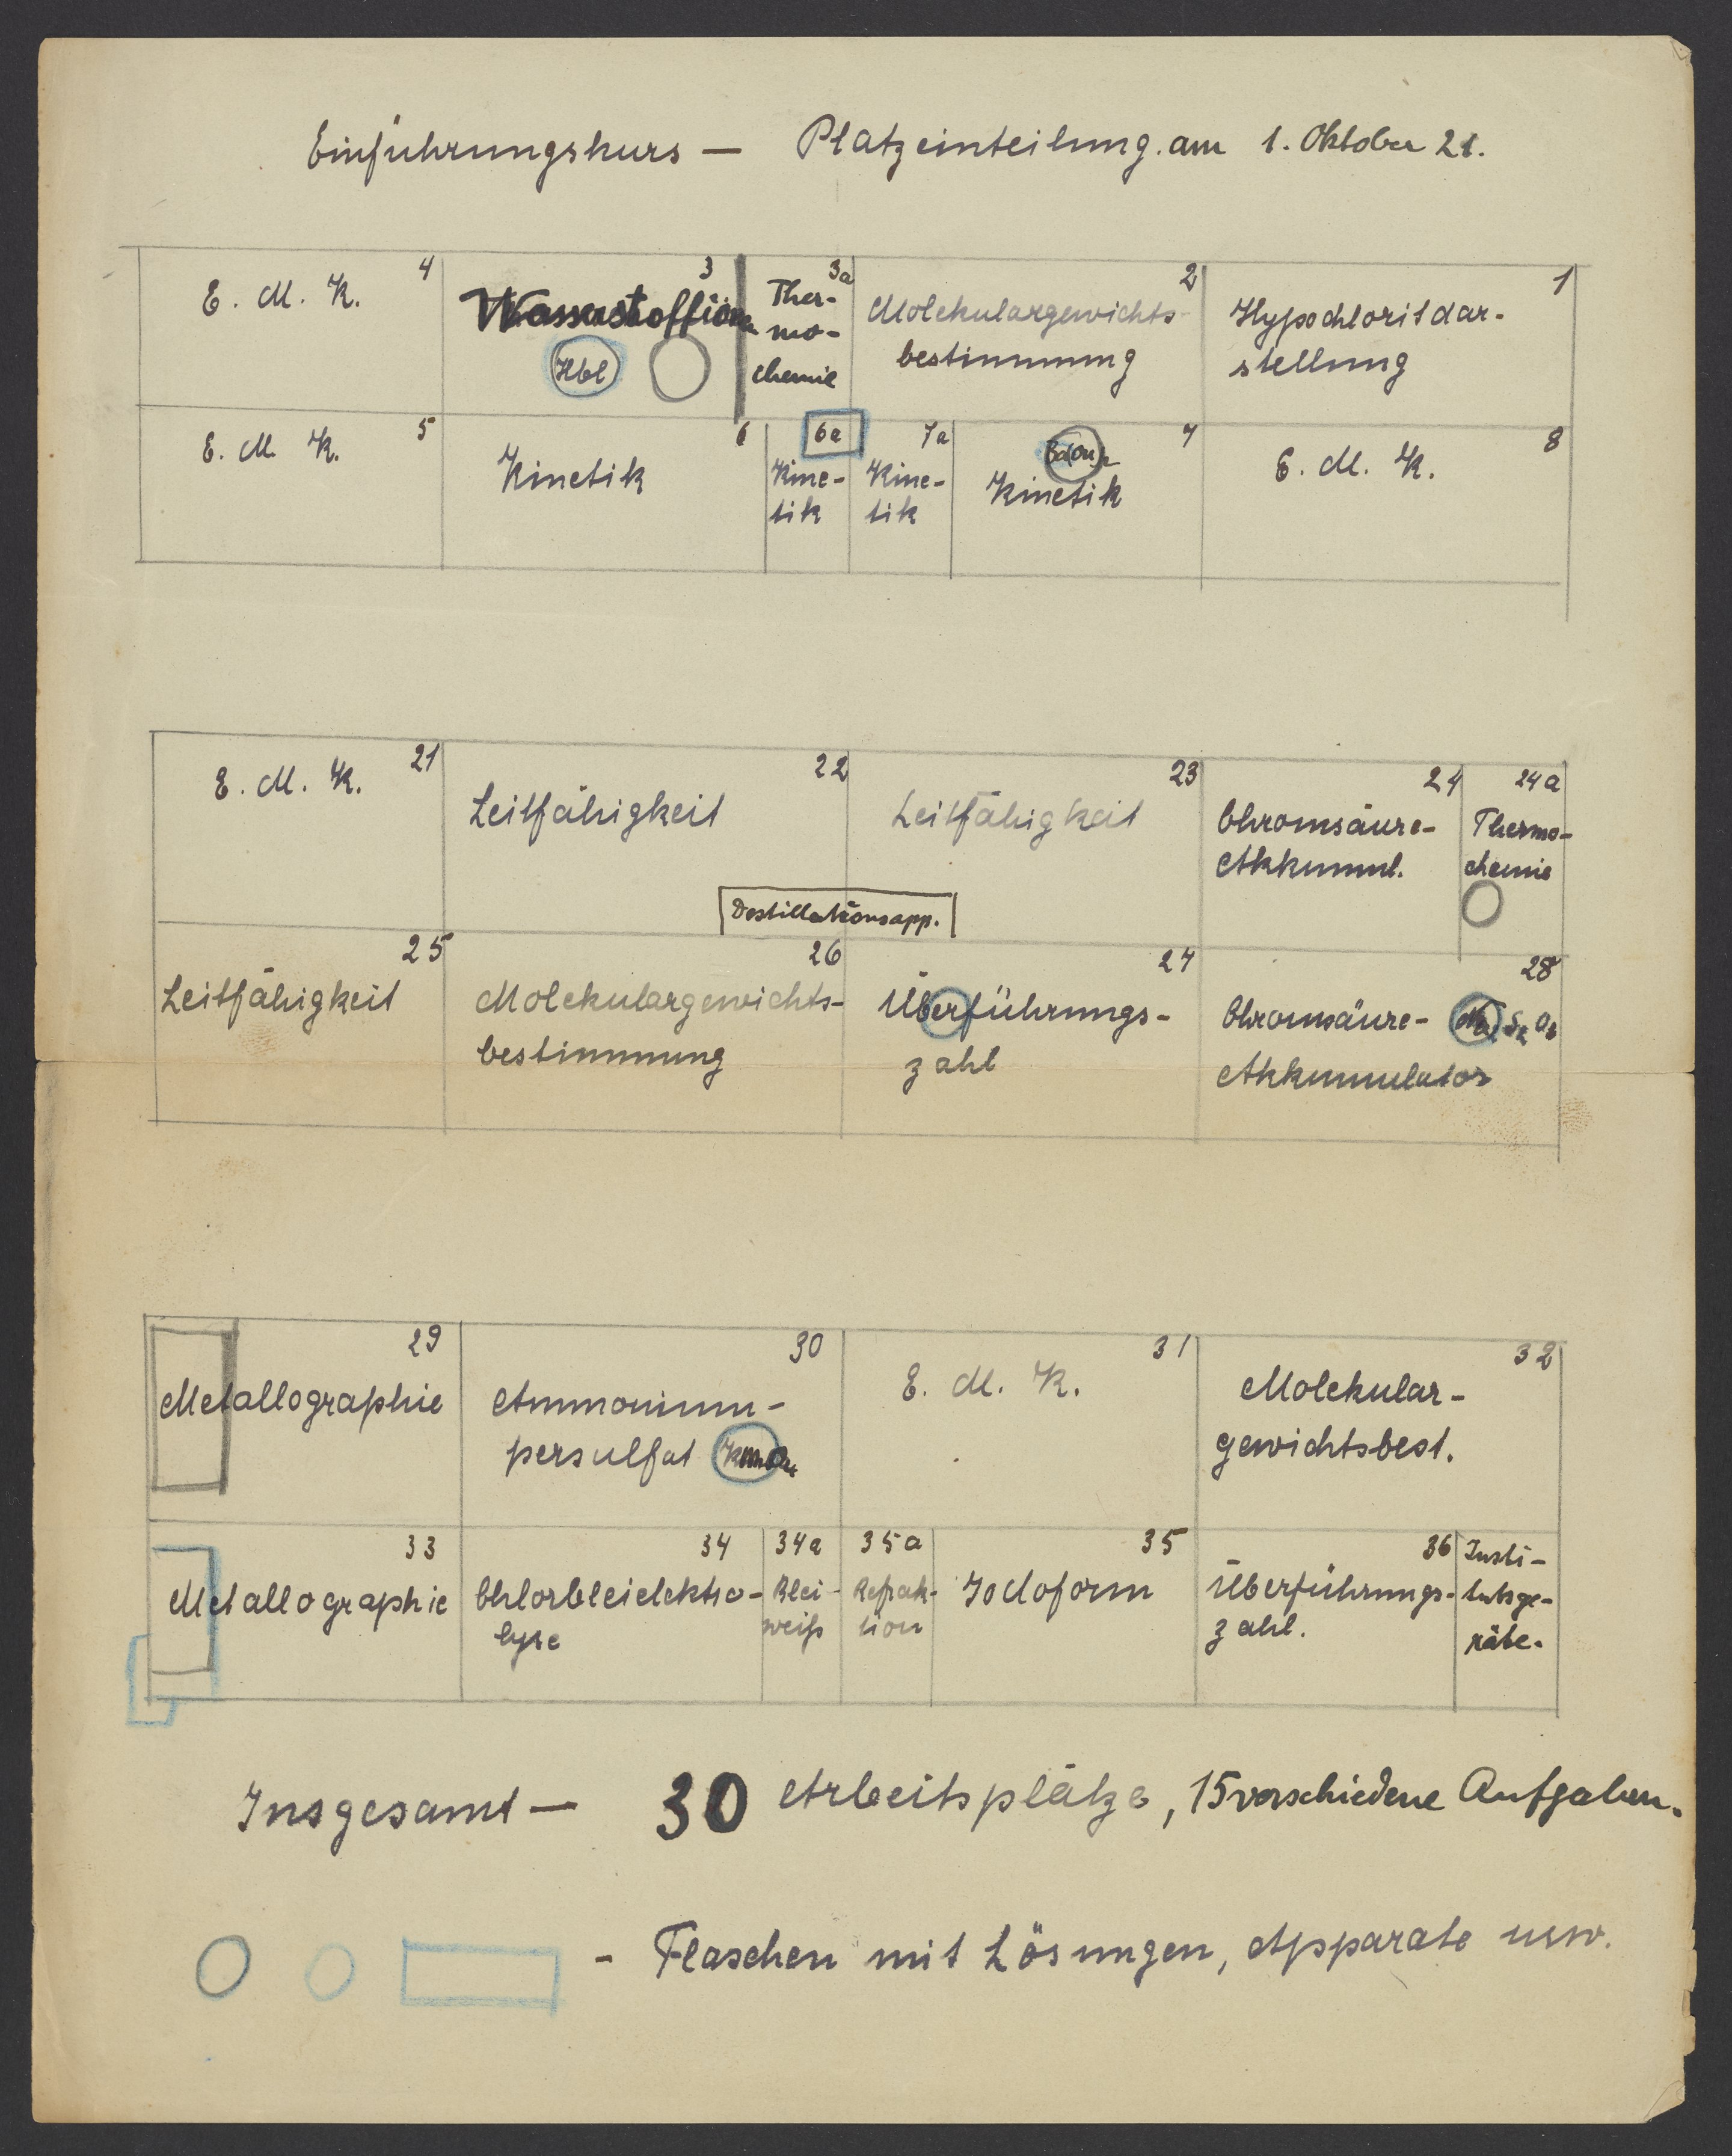 Einführungskurs — Platzeinteilung am 1. Oktober 21.
4
E. M. K.
3
Wasserstoffione
Hbl
3a
Ther-
mo-
chemie
2
Molekulargewichts-
bestimmung
1
Hypochloritdar-
stellung
5
E. M. K.
6
Kinetik
6a
Kine-
tik
7a
Kine-
tik
7
Kinetik
8
E. M. K.
21
E. M. K.
22
Leitfähigkeit
23
Leitfähigkeit
24
Chromsäure-
Akkumul.
24a
Thermo-
chemie
Destillationsapp.
25
Leitfähigkeit
26
Molekulargewichts-
bestimmung
27
Überführungs-
zahl
28
Chromsäure-
Akkumulator
29
Metallographie
30
Ammonium-
persulfat
31
E. M. K.
32
Molekular-
gewichtsbest.
33
Metallographie
34
Chlorbleielektro-
lyse
34a
Blei-
weiß
35a
Refrak-
tion
35
Jodoform
36
Überführungs-
zahl.
Insti-
tutsge-
räte.
Insgesamt — 30 Arbeitsplätze, 15 verschiedene Aufgaben.
- Flaschen mit Lösungen, Apparate usw.